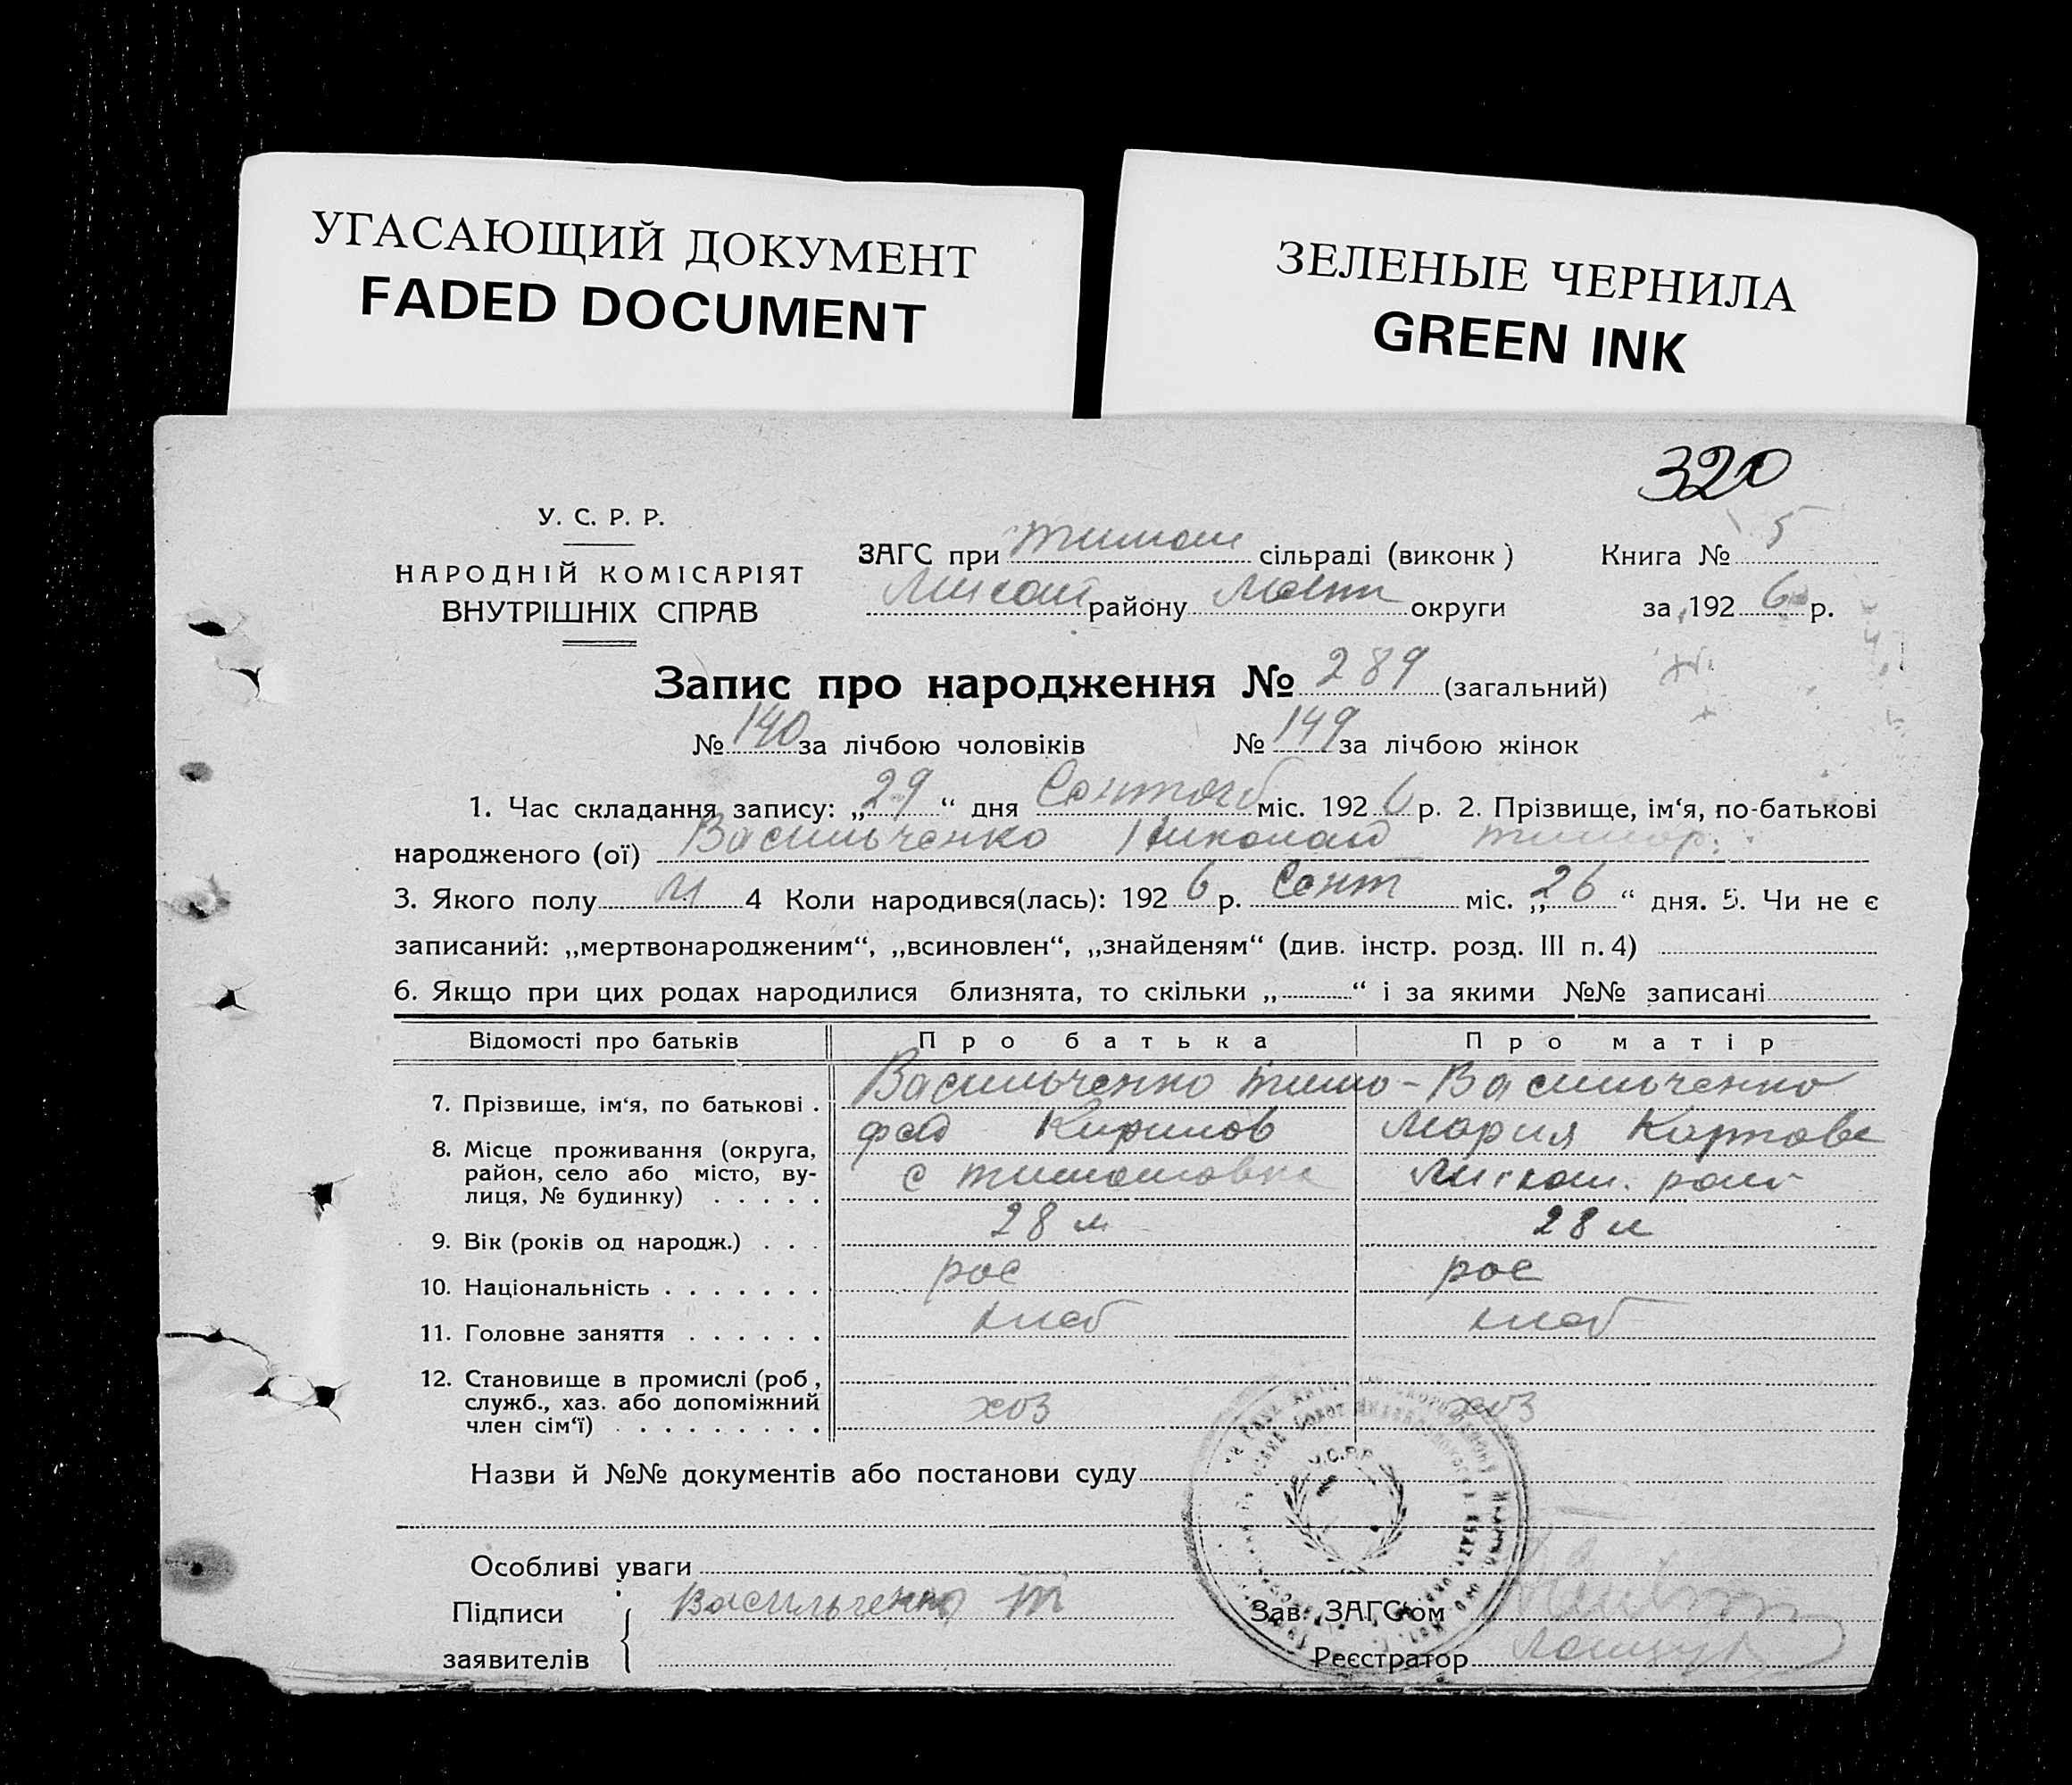 УГАСАЮЩИЙ ДОКУМЕНТ
FADED DOCUMENT
ЗЕЛЕНЫЕ ЧЕРНИЛА
GREEN INK
320
У. С. Р. Р.
НАРОДНІЙ КОМІСАРІЯТ
ВНУТРІШНІХ СПРАВ
ЗАГС при Тимош сільраді (виконк) Книга № 5
району округи за 1926 р.
Запис про народження № 289 (загальний)
№ 140 за лічбою чоловіків № 149 за лічбою жінок
1. Час складання запису: „29“ дня міс. 1926 р. 2. Прізвище, ім‘я, по-батькові
народженого (ої) Васильченко Николай Тимоф.
3. Якого полу М 4 Коли народився(лась): 1926 р. Сент міс. „26“ дня. 5. Чи не є
записаний: „мертвонародженим“, „всиновлен“, „знайденям“ (див. інстр. розд. III п. 4)
6. Якщо при цих родах народилися близнята, то скільки „ “ і за якими №№ записані
Відомості про батьків Про батька Про матір
7. Прізвище, ім‘я, по батькові . Васильченко Тимо- Васильченко
фей Кирилов Мария Карпова
8. Місце проживання (округа,
район, село або місто, ву-
лиця, № будинку) . . . . . с Тимошовка
9. Вік (років од народж.) . . . 28 л 28 л
10. Національність . . . . . . . рос рос
11. Головне заняття . . . . . . хлеб хлеб
12. Становище в промислі (роб.,
служб., хаз. або допоміжний
член сім‘ї) . . . . . . . . . хоз хоз
Назви й №№ документів або постанови суду
Особливі уваги
Підписи Васильченко Т Зав. ЗАГС‘ом
заявителів Реєстратор
У.С.Р.Р.